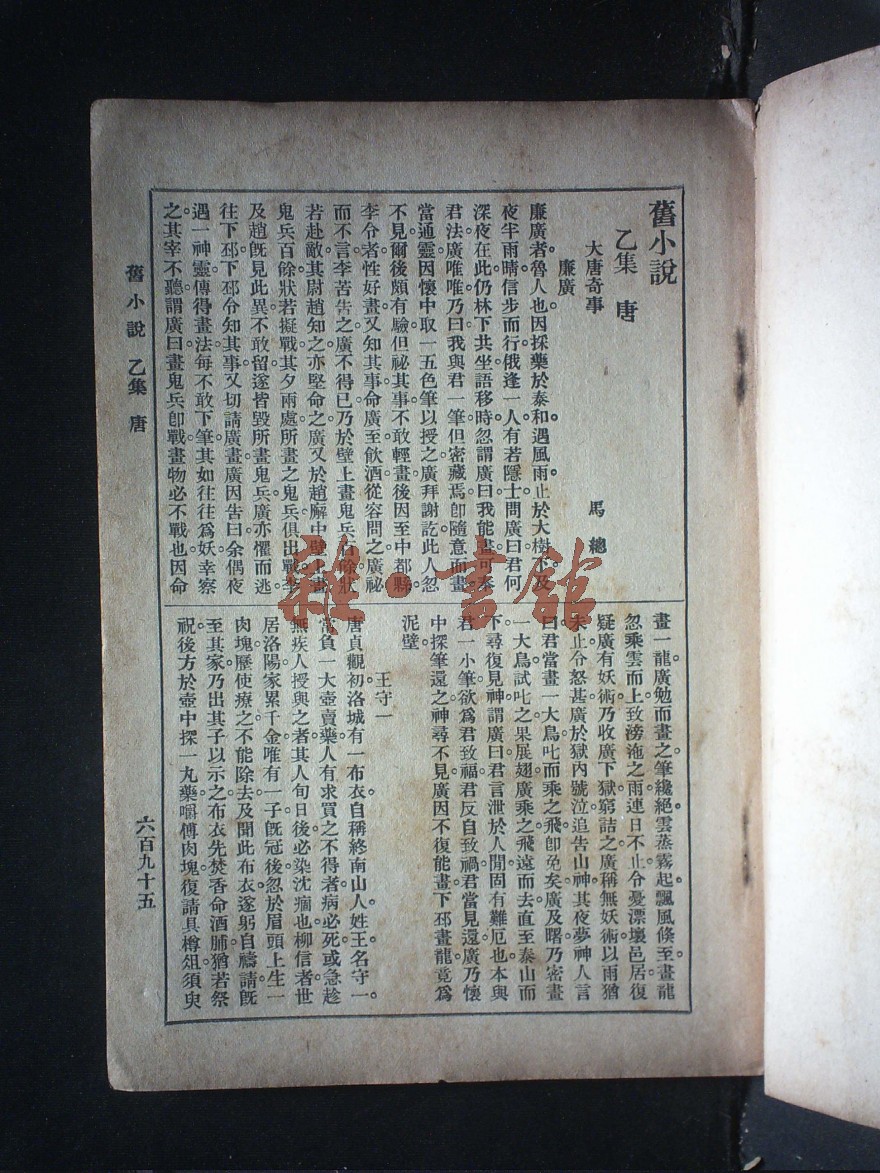 舊小說
乙集 唐
大唐奇事 馬總
廉廣
廉廣者。魯人也。因採藥於泰和。遇風雨。止於大樹下。及
夜半雨晴。信步而行。俄逢一人。有若隱士。問廣曰。君何
深夜在此。仍林下共坐。語移時。忽謂廣曰。我能畫。可奉
君法。廣唯唯。乃曰。我與君一筆。但密藏焉。卽隨意而畫。
當通靈。因懷中取一五色筆以授之。廣拜謝訖。此人忽
不見。爾後頗有驗。但祕其事。不敢輕畫。後因至中都縣。
李令者性好畫。又知其事。命廣至飲酒。從容問之。廣祕
而不言。李苦告之。廣不得已。乃於壁上畫鬼兵百餘。狀
若赴敵。其尉趙知之。亦堅命之。廣又於趙廨中壁上畫
鬼兵百餘。狀若擬戰。其夕兩處所畫之鬼兵俱出戰。李
及趙旣見此異。不敢留。遂皆毀所畫鬼兵。廣亦懼而逃
往下邳。下邳令知其事。又切請廣畫。廣因告曰。余偶夜
遇一神靈。傳得畫法。每不敢下筆。其如往往爲妖。幸察
之。其宰不聽。謂廣曰。畫鬼兵卽戰。畫物必不戰也。因命
畫一龍。廣勉而畫之。筆纔絕。雲蒸霧起。飄風倏至。畫龍
忽乘雲而上。致滂沱之雨。連日不止。令憂漂壞邑居。復
疑廣有妖術。乃收廣下獄。窮詰之。廣稱無妖術。以雨猶
未止。令怒甚。廣於獄內號泣。追告山神。其夜夢神人言
曰。君當畫一大鳥。叱而乘之飛。卽免矣。廣及曙。乃密畫
一大鳥。試叱之。果展翅。廣乘之。飛遠而去。直至泰山而
下。尋復見神。謂廣曰。君言泄於人間。固有難厄也。本與
君一小筆。欲爲君致福。君反自致禍。君當見還。廣乃懷
中探筆還之。神尋不見。廣因不復能畫。下邳畫龍。竟爲
泥壁。
王守一
唐貞觀初。洛城有一布衣。自稱終南山人。姓王。名守一。
常負一大壺賣藥。人有求買之不得者。病必死。或急趁
無疾人授與之者。其人旬日後必染沈痼也。柳信者。世
居洛陽。家累千金。唯有一子。旣冠後。忽於眉頭上生一
肉塊。歷使療之。不能除去。及聞此布衣。遂躬自禱請。旣
至其家。乃出其子以示之。布衣先焚香。命酒脯。猶若祭
祝。後方於壺中探一丸藥。嚼傅肉塊。復請具樽俎。須臾
舊小說 乙集 唐
六百九十五
雜·書館